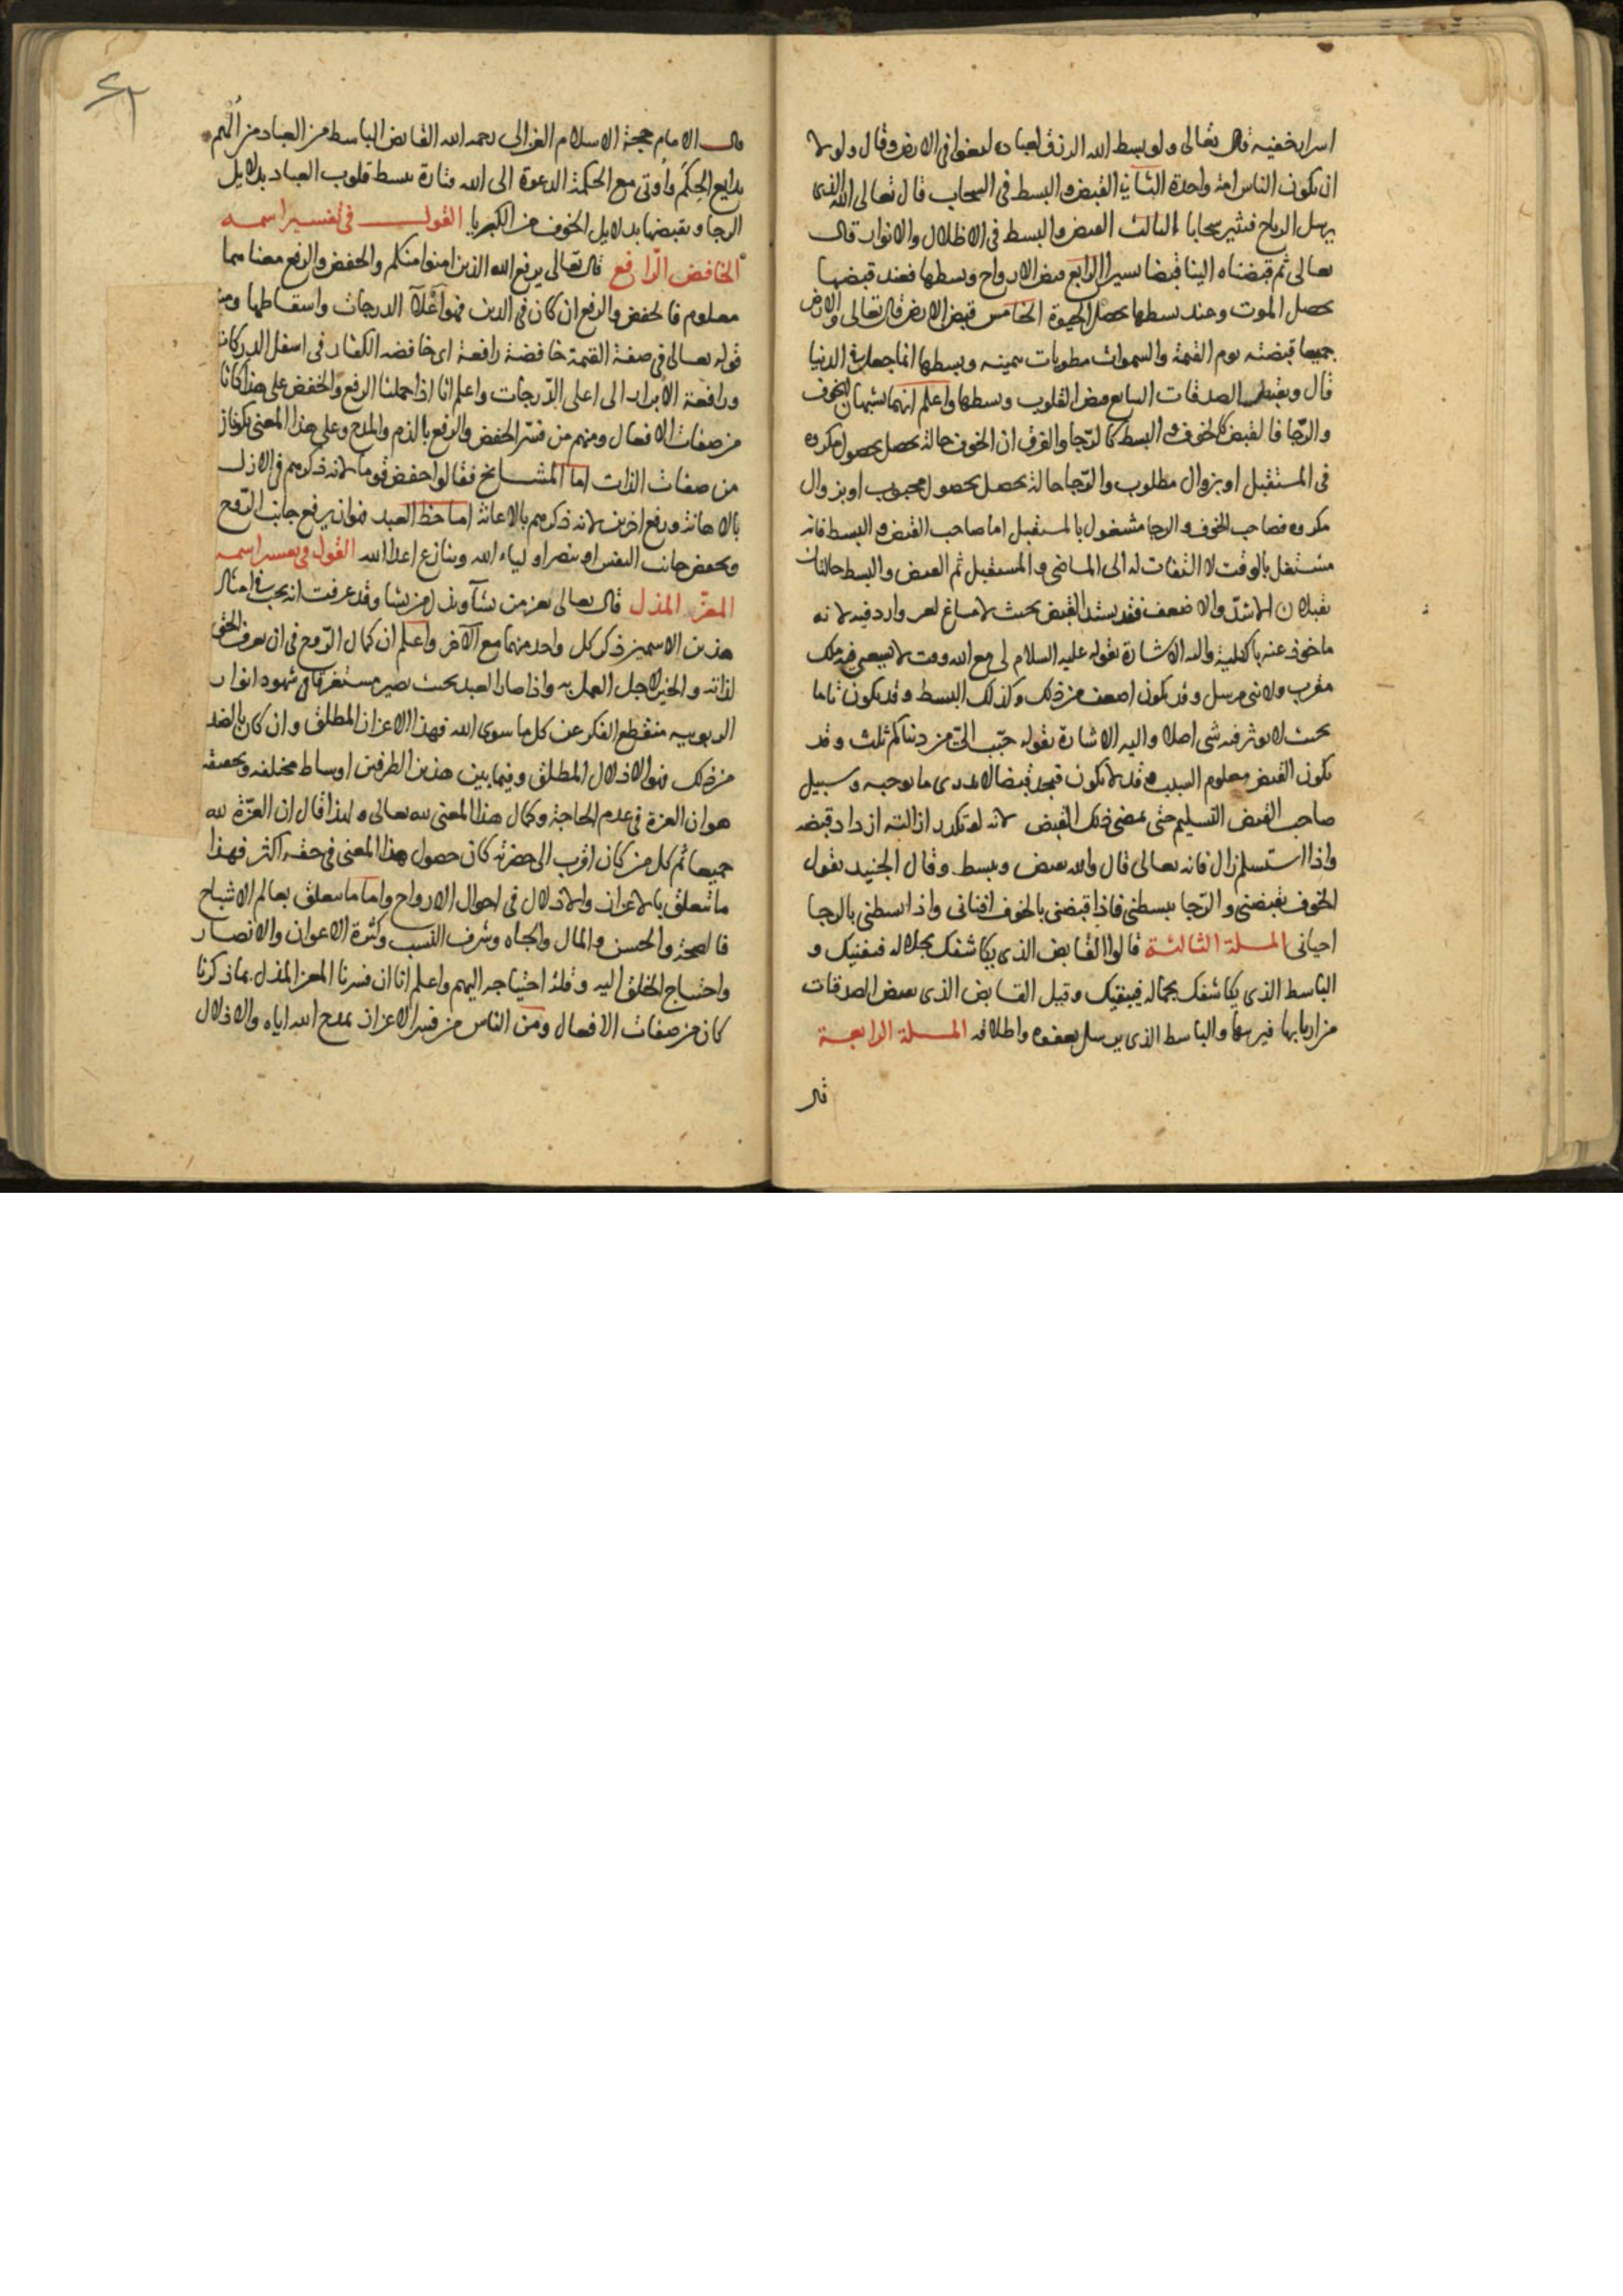 اسرار خفيه قال تعالى ولو بسط الله الرزق لعباده لبغوا في الارض وقال ولولا
ان يكون الناس امة واحدة الثاني القبض والبسط في السحاب قال تعالى الله الذى
يرسل الرياح فتثير سحابا الثالث القبض والبسط في الاظلال والانوار قال
تعالى ثم قبضناه الينا قبضا يسيرا الرابع قبض الارواح وبسطها فعند قبضها
يحصل الموت وعند بسطها يحصل الحيوة الخامس قبض الارض قال تعالى والارض
جميعا قبضته يوم القيمة والسموات مطويات بيمينه وبسطها انما جعل في الدنيا
قال ويقبض الصدقات السابع قبض القلوب وبسطها واعلم انهما يشبهان الخوف
والرجا فالقبض كالخوف والبسط كالرجا والفرق ان الخوف حالة تحصل بحصول مكروه
في المستقبل او بزوال مطلوب والرجا حالة تحصل بحصول محبوب او بزوال
مكروه فصاحب الخوف والرجا مشغول بالمستقبل اما صاحب القبض والبسط فانه
مشتغل بالوقت لا التفات له الى الماضى والمستقبل ثم القبض والبسط حالتان
يقبلان الاشد والاضعف فقد يشتد القبض بحيث لا مساغ لغير وارد فيه لانه
ماخوذ عنه بالكلية واليه الاشارة بقوله عليه السلام لى مع الله وقت لا يسعنى فيه ملك
مقرب ولا نبى مرسل وقد يكون اضعف من ذلك وكذلك البسط وقد يكون تاما
بحيث لا يوثر فيه شى اصلا واليه الاشارة بقوله حبّب الىّ من دنياكم ثلث وقد
يكون القبض معلوم السبب وقد لا يكون فيجد قبضا لا يدرى ما يوجبه وسبيل
صاحب القبض التسليم حتى يمضى ذلك القبض لانه لو تكدر ازالته ازداد قبضه
واذا استسلم زال فانه تعالى قال والله يقبض ويبسط وقال الجنيد يقول
الخوف يقبضنى والرّجا يبسطنى فاذا قبضنى بالخوف افنانى واذا بسطنى بالرجا
احيانى المسلة الثالثة قالوا القابض الذى يكاشفك بجلاله فيفنيك و
الباسط الذى يكاشفك بجماله فيبقيك وقيل القابض الذى يقبض الصدقات
من اربابها فيربيها والباسط الذى يرسل بعفوه واطلاقه المسلة الرابعة
قال
قال الامام حجة الاسلام الغزالى رحمه الله القابض الباسط من العباد من الُهم
بدايع الحِكَم واُوتى مع الحكمة الدعوة الى الله فتارة يبسط قلوب العباد بدلايل
الرجا ويقبضها بدلايل الخوف من الكبريا القول في تفسير اسمه
الخافض الرّافع قال تعالى يرفع الله الذين امنوا منكم والخفض والرفع معناهما
معلوم فالخفض والرفع ان كان في الدين فهو اعلا الدرجات واسقاطها ومنه
قوله تعالى في صفة القيمة خافضة رافعة اى خافضه الكفار في اسفل الدركات
ورافعة الابرار الى اعلى الدّرجات واعلم انا اذا حملنا الرفع والخفض على هذا كانا
من صفات الافعال ومنهم من فسّر الخفض والرفع بالذم والمدح وعلى هذا المعنى يكونان
من صفات الذات اما المشايخ فقالوا خفض قوما لانه ذكرهم في الازل
بالاهانة ورفع اخرين لانه ذكرهم بالاعانة اما حظ العبد فهو ان يرفع جانب الرّوح
ويخفض جانب النفس او ينصر اولياء الله وينازع اعدا الله القول في تفسير اسمه
المعزّ المذل قال تعالى تعز من تشآ وتذل من تشا وقد عرفت انه يجب في امثال
هذين الاسمين ذكر كل واحد منهما مع الآخر واعلم ان كمال الرّوح في ان يعرف الحق
لذاته والخير لاجل العمل به واذا صار العبد بحيث يصير مستغرقا في شهود انوار
الربوبيه منقطع الفكر عن كل ما سوى الله فهذا الاعزاز المطلق وان كان بالضد
من ذلك فهو الاذلال المطلق وفيما بين هذين الطرفين اوساط مختلفه وتحقيقه
هو ان العزة في عدم الحاجة وكمال هذا المعنى لله تعالى ولهذا قال ان العزّة لله
جميعا ثم كل من كان اقرب الى حضرته كان حصول هذا المعنى في حقه اكثر فهذا
ما يتعلق بالاعزاز والاذلال في احوال الارواح واما ما يتعلق بعالم الاشباح
فالصحة والحسن والمال والجاه وشرف النسب وكثرة الاعوان والانصار
واحتياج الخلق اليه وقلة احتياجه اليهم واعلم انا ان فسرنا المعز المذل بما ذكرنا
كان من صفات الافعال ومن الناس من فسر الاعزاز بمدح الله اياه والاذلال